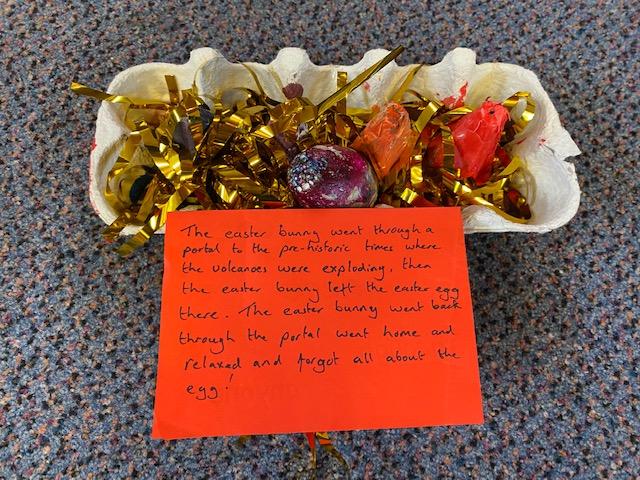 The easter bunny went through a
portal to the pre-historic times where
the volcanoes were exploding, then
the easter bunny left the easter egg
there. The easter bunny went back
through the portal went home and
relaxed and forgot all about the
egg!